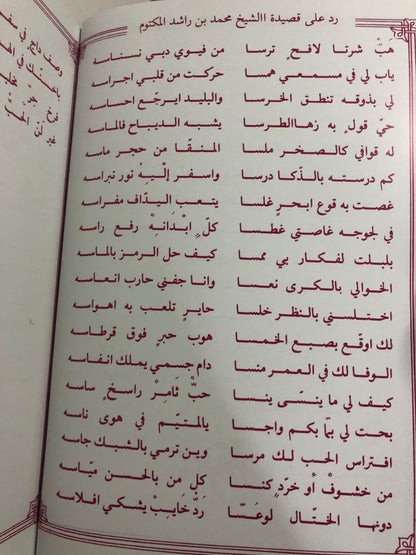 رد على قصيدة االشيخ محمد بن راشد المكتوم
هَبّ شرتا لافحٍ ترسا من فيوي دبي نسناسه
ياب لي في مسمعي همسا حركت من قلبي اجراسه
لي بذوقه تنطق الخرسا والبليد ايرجّع احساسه
حيّ قولٍ به زهاالطرسا يشبه الديباح فالماسه
له قوافي كالصخر ملسا المنقّا من حجر ماسه
كم درسته بالذّكا درسا واسفر إلَيهْ نور نبراسه
غصت به قوع ابحرٍ غلسا يتعب اليدّاف مفراسه
في لجوجه غاصتي غطسا كلّ ابْدانهْ رفع راسه
بلبلت لفكار بي ممسا كيف حل الرمز بالماسه
الخوالي بالكرى نعسا وانا جفني حارب انعاسه
اختلسني بالنظر خلسا حايرٍ تلعب به اهواسه
لك اوقّع بصبع الخمسا هوب حبرٍ فوق قرطاسه
الوفا لك في العمر منسا دام جسمي يملك انفاسه
كيف لي ما ينسّى ينسا حبٍّ ثامِرْ راسخٍ ساسه
بحت لي بمّا بكم واجسا يالمتيّم في هوى ناسه
افتراس الحب لك مرسا وين ترمي بالشبك جاسه
من خشوفٌ أو خردٍ كنسا كل من بالحسن ميّاسه
دونها الختّال لوعسّا رَدّ خَايبْ يشكي افلاسه
وصف داجٍ في